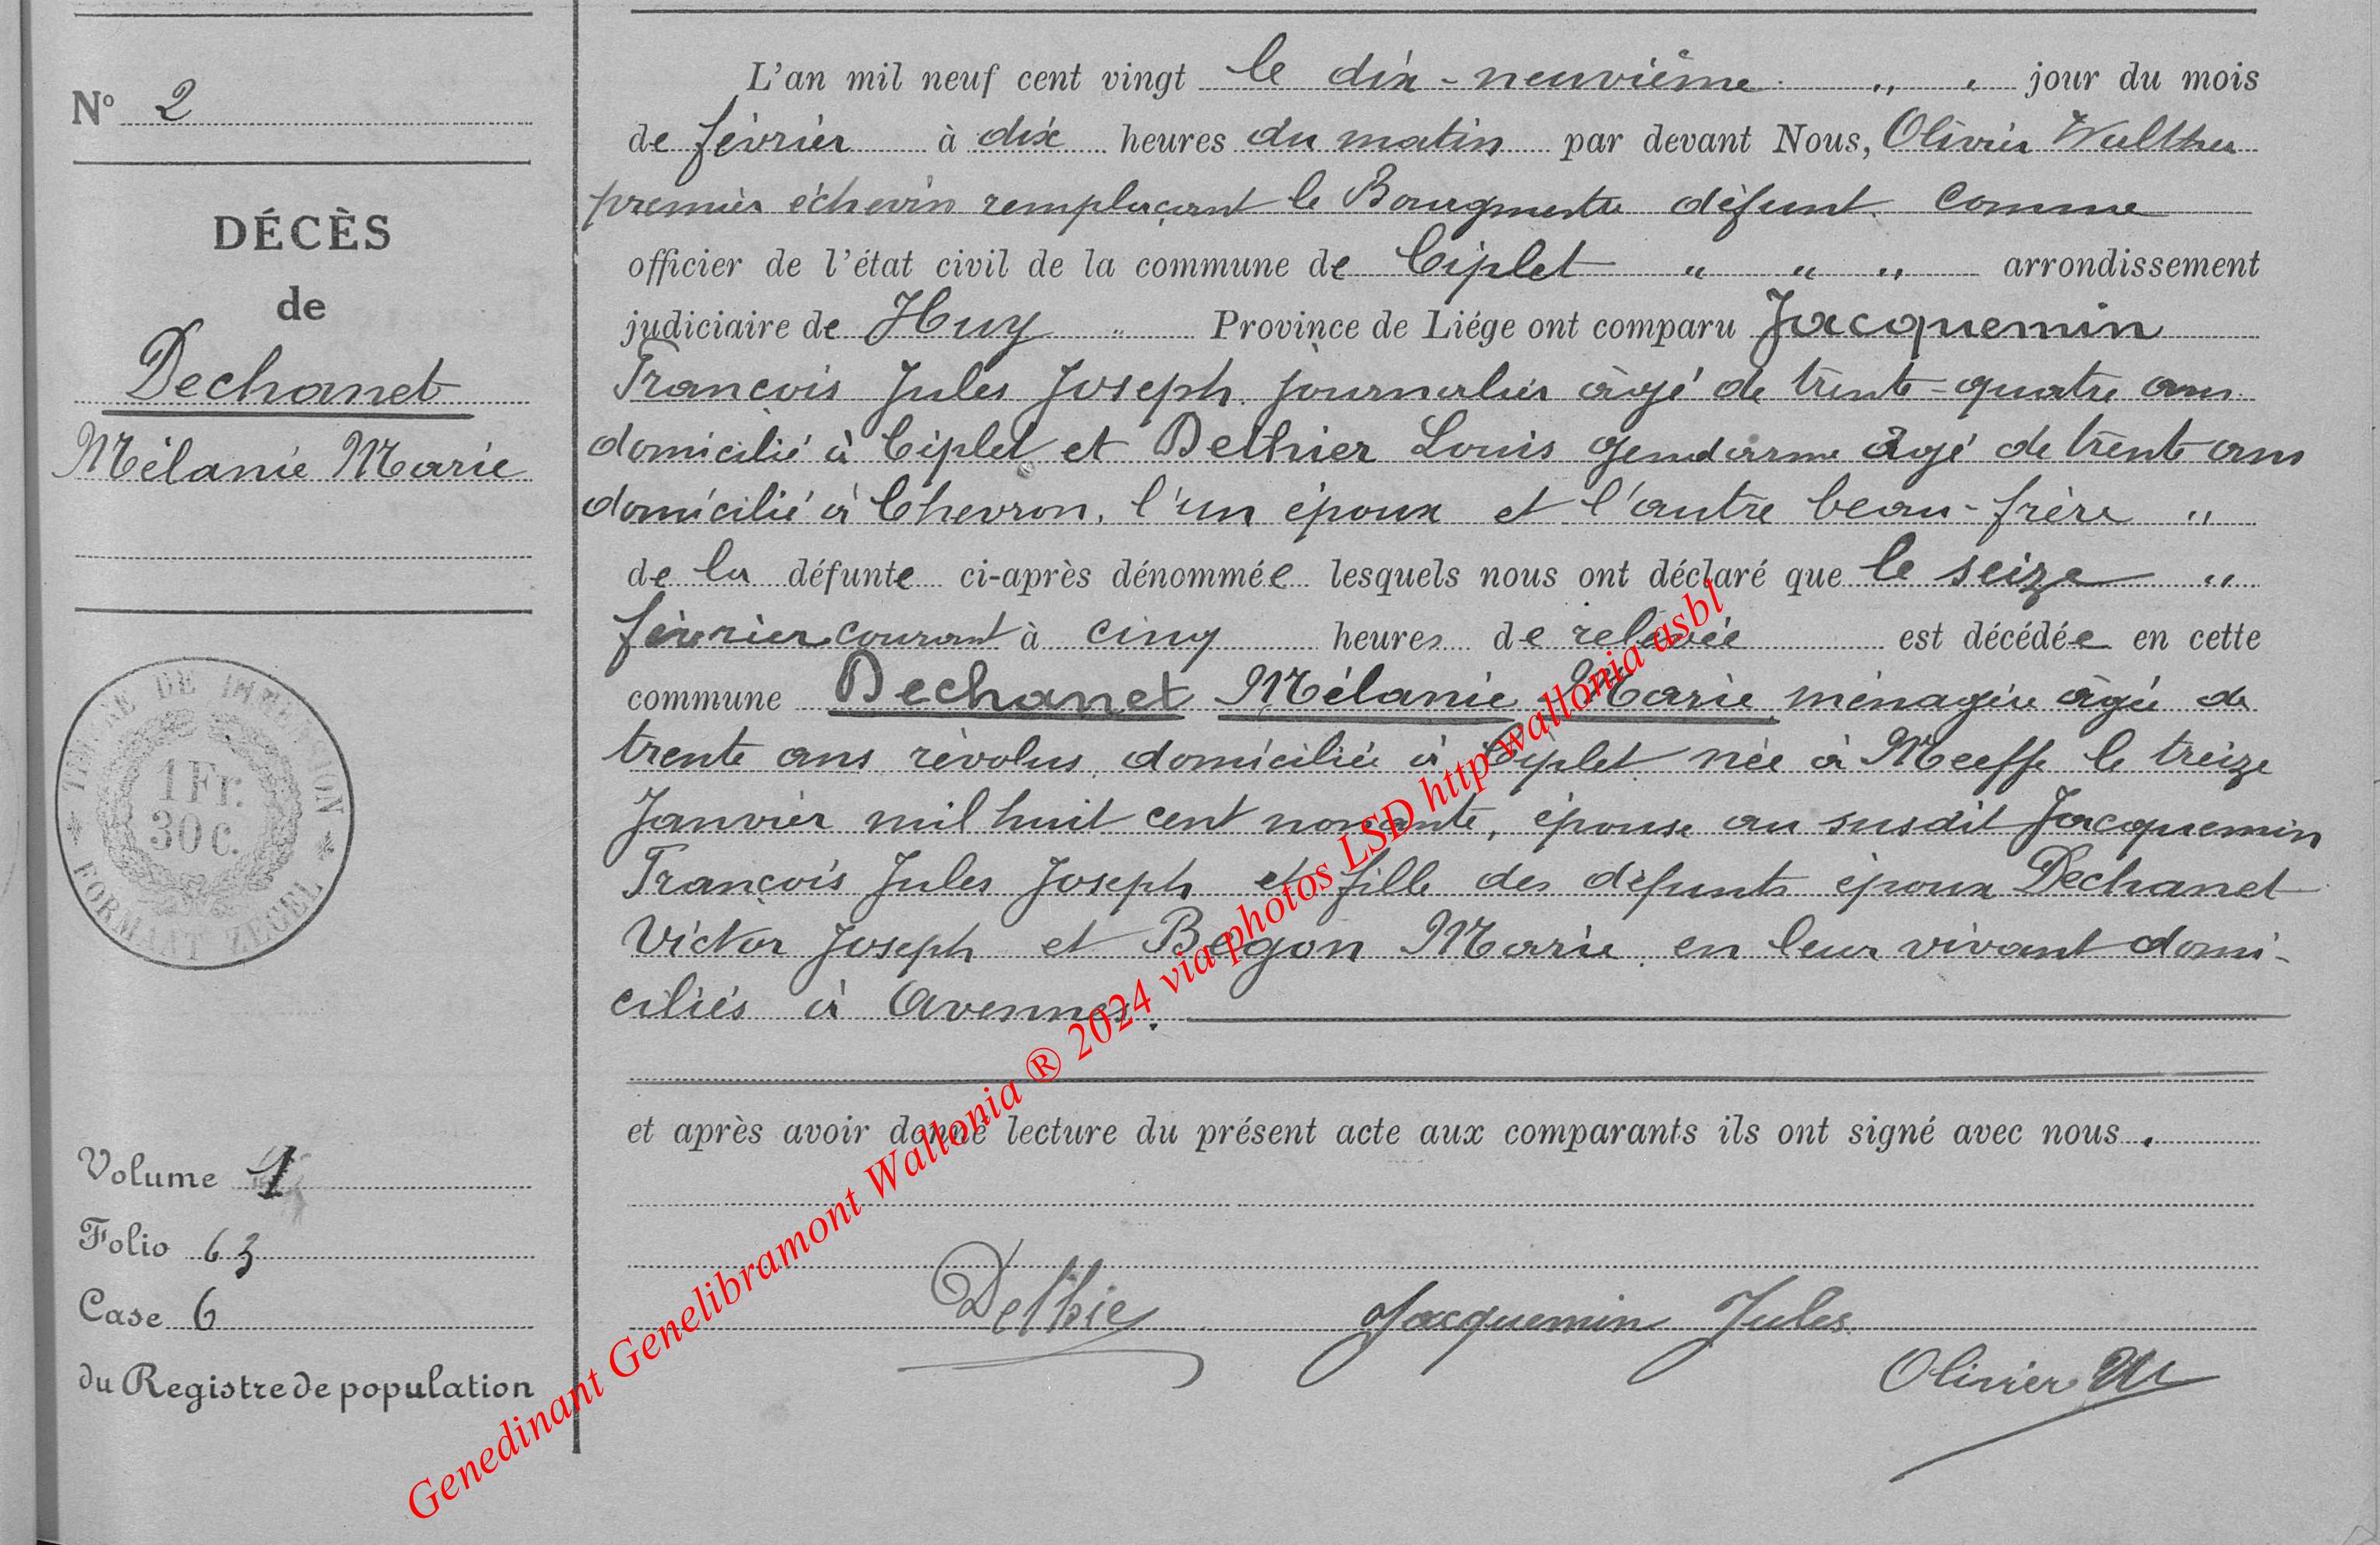 N° 2
DÉCÈS
de
Dechanet
Mélanie Marie
TIMBRE DE DIMENSION
1 Fr.
30 c.
FORMAAT ZEGEL
Volume 1
Folio 63
Case 6
du Registre de population
L'an mil neuf cent vingt le dix-neuvième " " jour du mois
de février à dix heures du matin par devant Nous, Olivier Walther
premier échevin remplaçant le Bourgmestre défunt comme
officier de l'état civil de la commune de Ciplet " " " arrondissement
judiciaire de Huy " Province de Liége ont comparu Jacquemin
François Jules Joseph journalier âgé de trente-quatre ans
domicilié à Ciplet et Delhier Louis gendarme âgé de trente ans
domicilié à Chevron, l'un époux et l'autre beau-frère "
de la défunte ci-après dénommée lesquels nous ont déclaré que le seize "
février courant à cinq heures de relevée est décédée en cette
commune Dechanet Mélanie Marie ménagère âgée de
trente ans révolus, domiciliée à Ciplet née à Meeffe le treize
Janvier mil huit cent nonante, épouse au susdit Jacquemin
François Jules Joseph et fille des défunts époux Dechanet
Victor Joseph et Begon Marie en leur vivant domi-
ciliés à Avennes.
et après avoir donné lecture du présent acte aux comparants ils ont signé avec nous.
Delhie Jacquemin Jules
Olivier W
Genedinant Genelibramont Wallonia ® 2024 via photos LSD http wallonia asbl